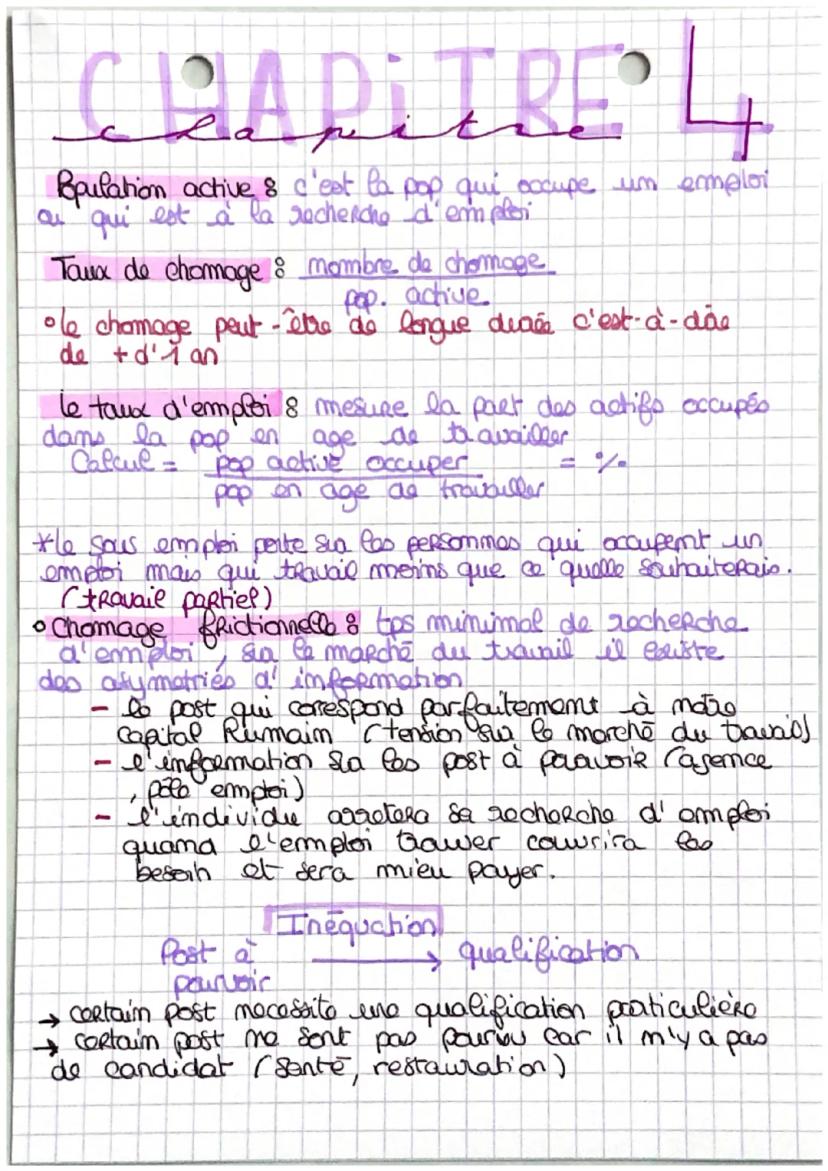 CHAPITRE 4
chapitre
Population active : c'est la pop qui occupe un emploi
ou qui est à la recherche d'emploi
Taux de chomage : nombre de chomage
pop. active
le chomage peut-être de longue durée c'est-à-dire
de + d'1 an
le taux d'emploi : mesure la part des actifs occupés
dans la pop en age de travailler
Calcul = pop active occuper = %
pop en age de travailler
*le sous emploi porte sur les personnes qui occupent un
emploi mais qui travail moins que ce quelle souhaiterais.
(travail partiel)
Chomage frictionnelle : tps minimal de recherche
d'emploi, sur le marché du travail il existe
des asymetries d'information
- le post qui correspond parfaitement à notre
capital humain (tension sur le marché du travail)
- l'information sur les post à pourvoir (agence
, pôle emploi)
- l'individu arretera sa recherche d'emploi
quand l'emploi trouver couvrira les
besoin et sera mieu payer.
Inéquation
Post à → qualification
pourvoir
→ certain post necessite une qualification particulière
→ certain post ne sont pas pourvu car il n'y a pas
de candidat (santé, restauration)